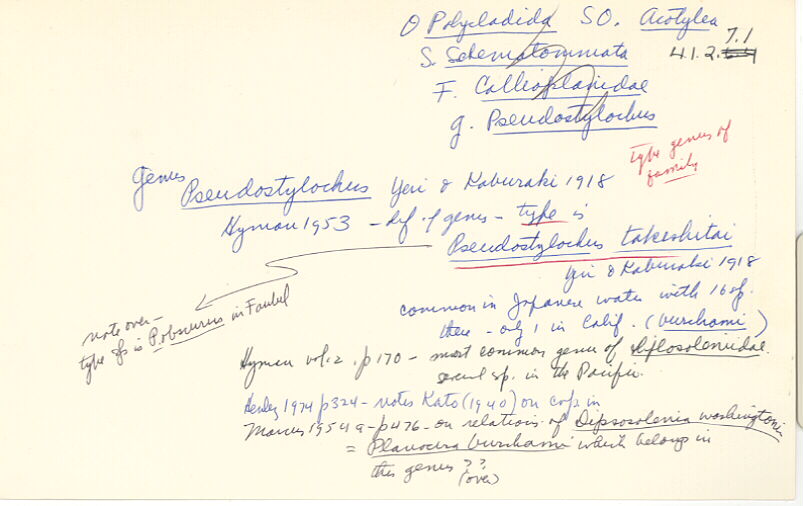 O Polycladida SO. Acotylea
7.1
S. Schematommata 41.2.
F. Callioplanidae
g. Pseudostylochus
type genus of
family
Genus Pseudostylochus Yeri & Kaburaki 1918
Hyman 1953 - def. of genus - type is
Pseudostylochus takeshitai
Yeri & Kaburaki 1918
common in Japanese water with 16 sp.
there - only 1 in Calif. (burchami)
note over -
type sp is P. obscurus in Faubel
Hyman vol. 2. p170 - most common genus of
sp. in the Pacific.
1974 p324 - notes Kato (1940) on
Marcus 1954a - p476 - on relations of
= Planocera burchami which belong in
this genus ??
(over)